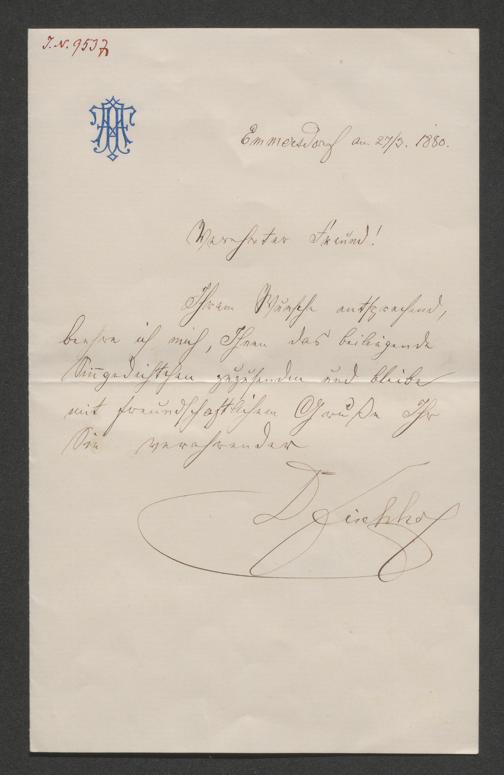 I. N. 9537
Emmersdorf am 27/3. 1880.
Verehrter Freund!
Ihrem Wunsche entsprechend,
beehre ich mich, Ihnen das beiliegende
Sinngedichtchen zuzusenden und bleibe
mit freundschaftlichem Gruße Ihr
Sie verehrender